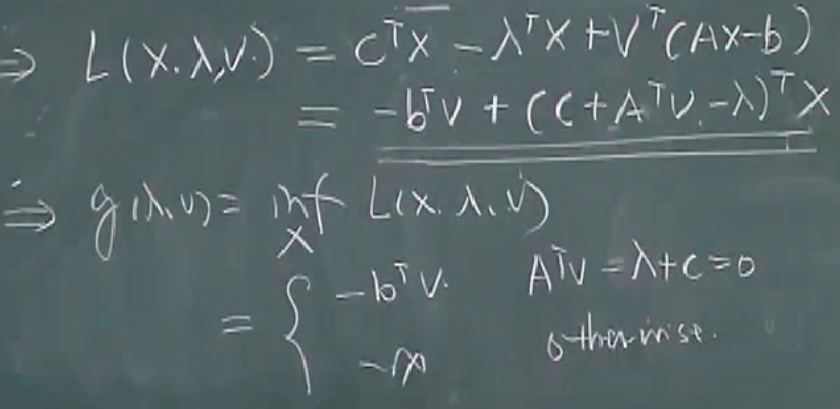 ⇒ L(x.λ,ν.) = CᵀX − λᵀX + Vᵀ(AX−b)
= −bᵀν + (C+Aᵀν−λ)ᵀX
⇒ g(λ,ν) = inf L(x.λ.ν)
X
= { −bᵀν. Aᵀν − λ+C=0
−∞ otherwise.